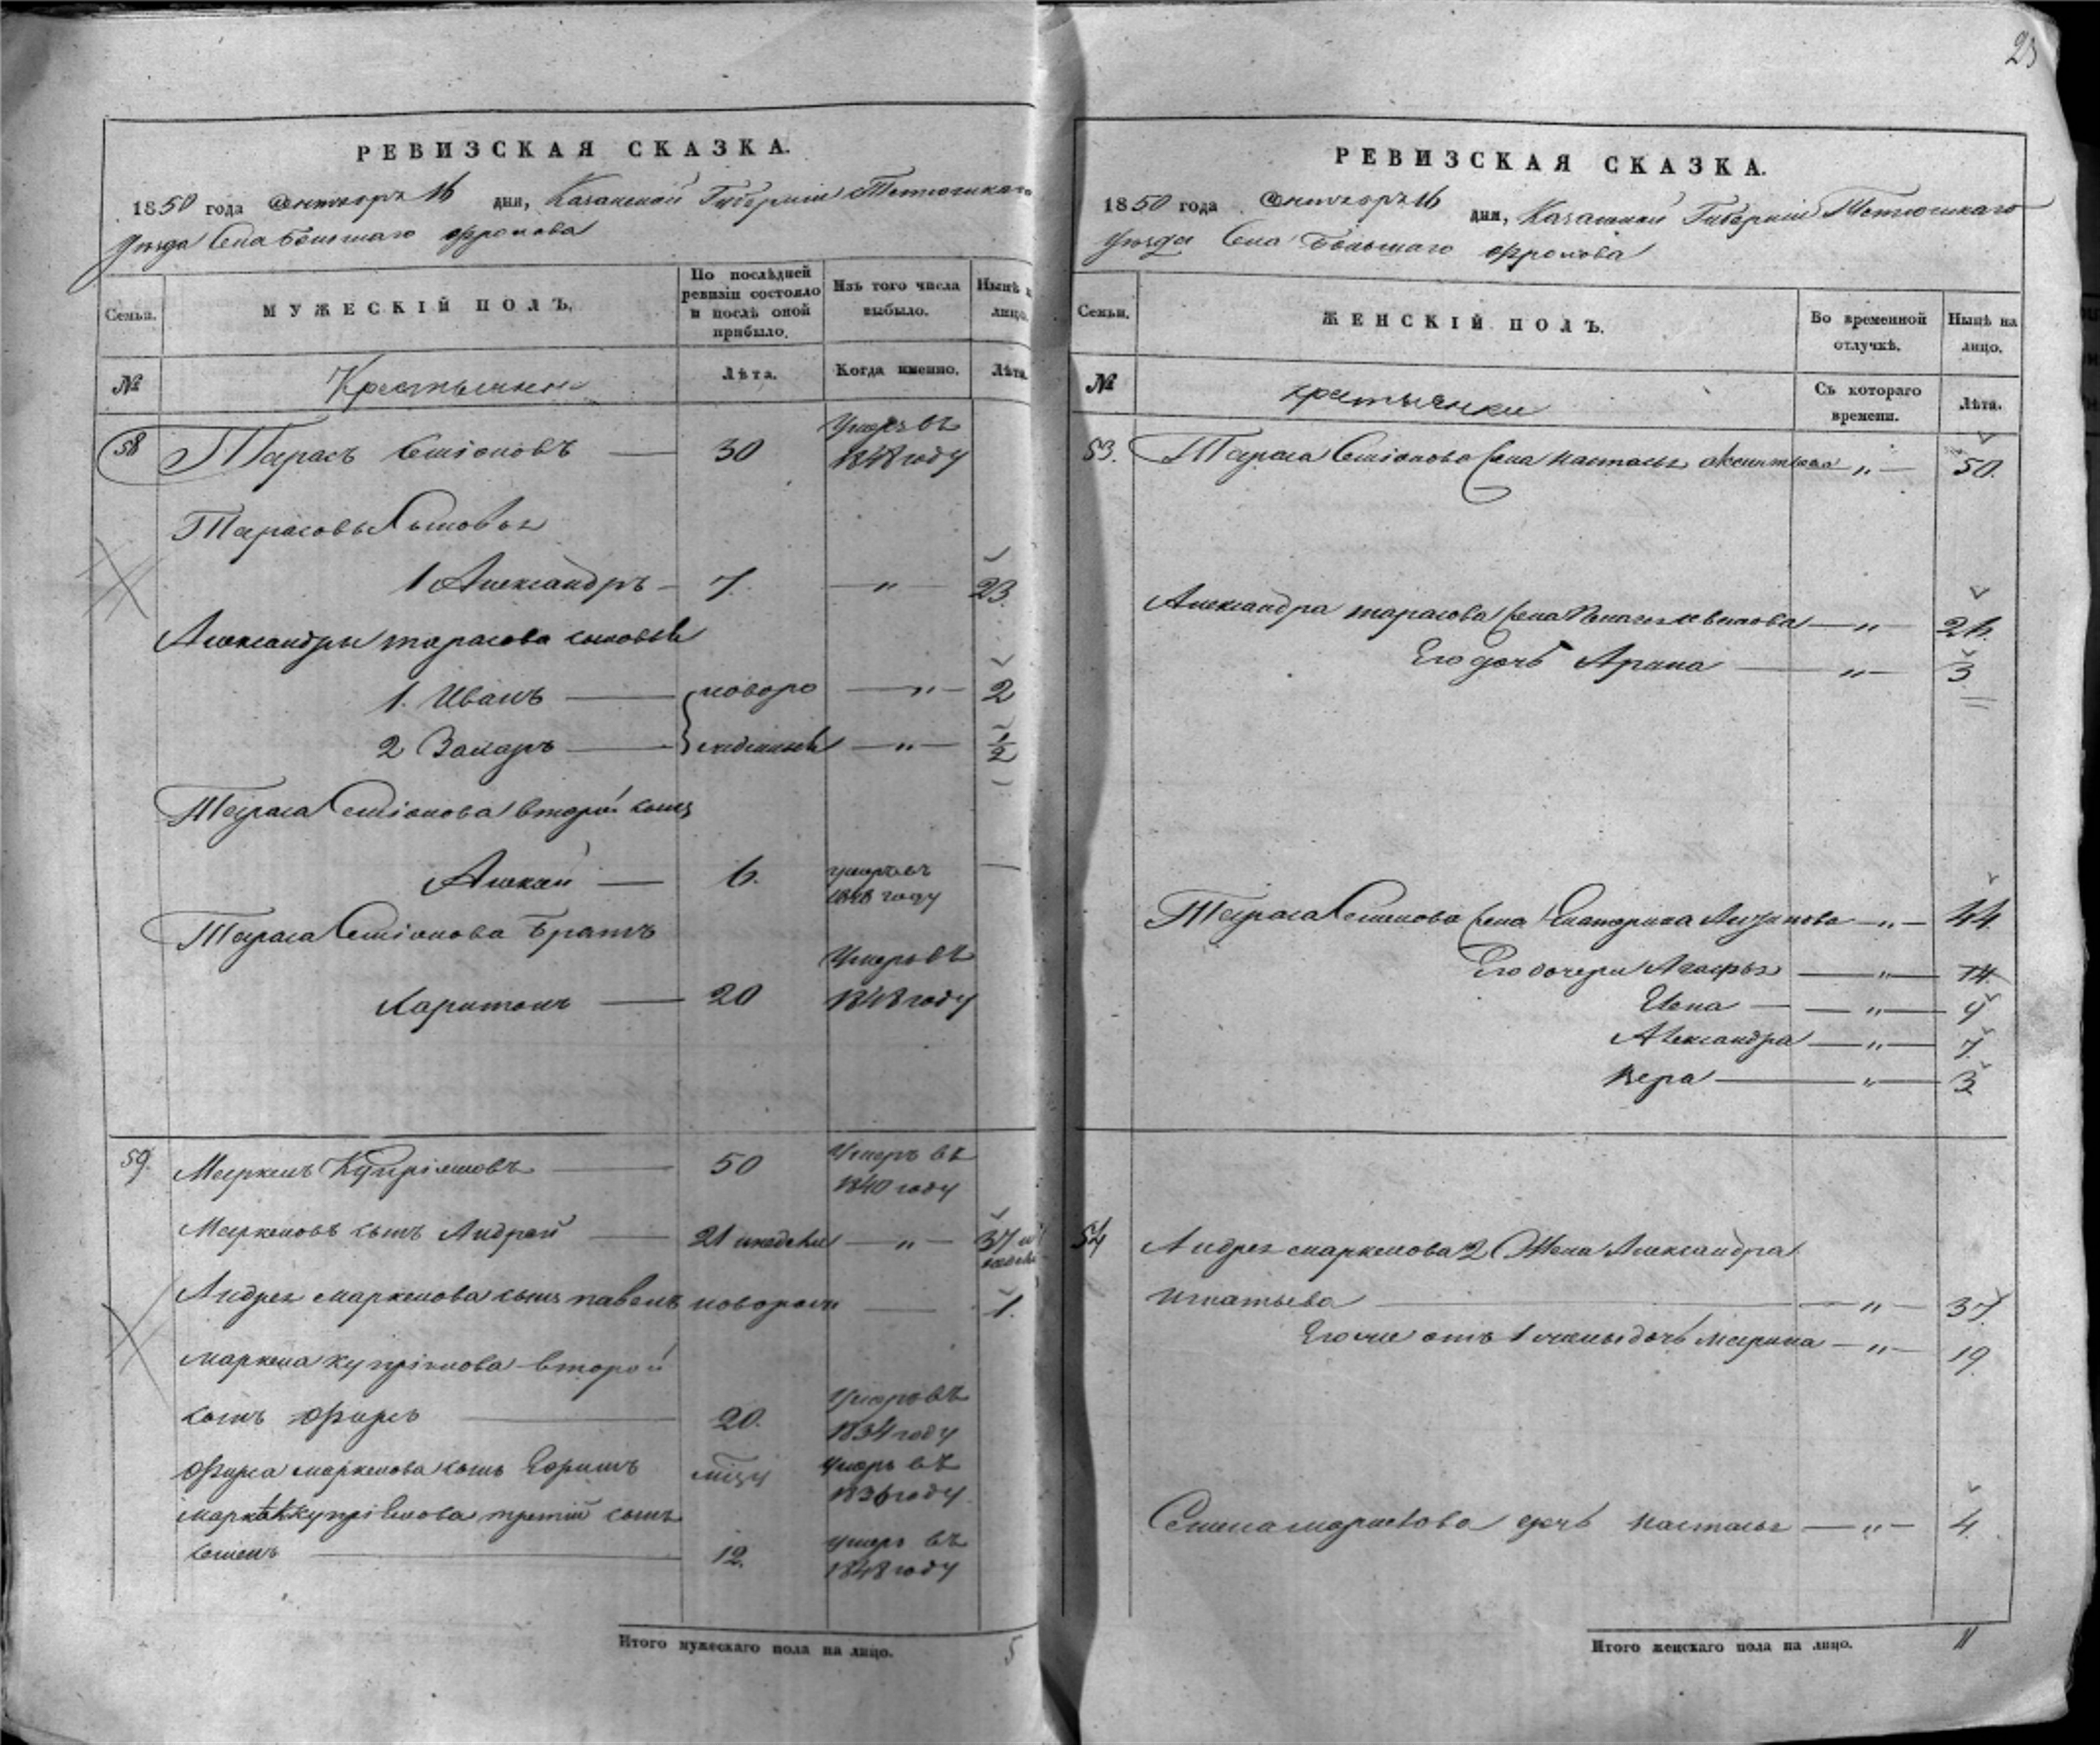 23
РЕВИЗСКАЯ СКАЗКА.
1850 года Октября 16 дня, Казанской Губернии Тетюшскаго
Уезда Села Большаго Фролова
Семьи. МУЖЕСКІЙ ПОЛЪ. По послѣдней ревизіи состояло и послѣ оной прибыло. Изъ того числа выбыло. Нынѣ на лицо.
№ Крестьяне Лѣта. Когда именно. Лѣта.
58 Тарасъ Семіоновъ 30 Умеръ въ 1848 году
Тарасовы Сыновья
1 Александръ 7. " 23.
Александры тарасова сыновья
1. Иванъ новоро " 2
2 Захаръ " 1/2
Тараса Семіонова второй сынъ
Алексей 6. умеръ въ 1848 году
Тараса Семіонова Братъ
Харитонъ 20 Умеръ въ 1848 году
59. Маркелъ Купріяновъ 50 Умеръ въ 1840 году
Маркеловъ сынъ Андрей 21 " 37
Андрея маркелова сынъ павелъ новорож 1.
маркела купріянова второй
сынъ Фирсъ 20. Умеръ въ 1834 году
Фирса маркелова сынъ Ефимъ умеръ въ 1836 году
маркела купріянова третій сынъ
семенъ 12. умеръ въ 1848 году
Итого мужескаго пола на лицо. 5
РЕВИЗСКАЯ СКАЗКА.
1850 года Октября 16 дня, Казанской Губерніи Тетюшскаго
Уезда Села Большаго Фролова
Семьи. ЖЕНСКІЙ ПОЛЪ. Во временной отлучкѣ. Нынѣ на лицо.
№ крестьянки Съ котораго времени. Лѣта.
53. Тараса Семіонова жена Настасья " 50.
Александра тарасова жена " 26.
Его дочь Арина " 3
Тараса Семенова жена Екатерина " 44.
Его дочери Агафья " 14
Елена " 9
Александра " 7.
Вера " 3
54 Андрея маркелова 2 Жена Александра
Игнатьева " 37.
Его же отъ 1 жены дочь Марина " 19.
Семена маркелова дочь Настасья " 4.
Итого женскаго пола на лицо. 11